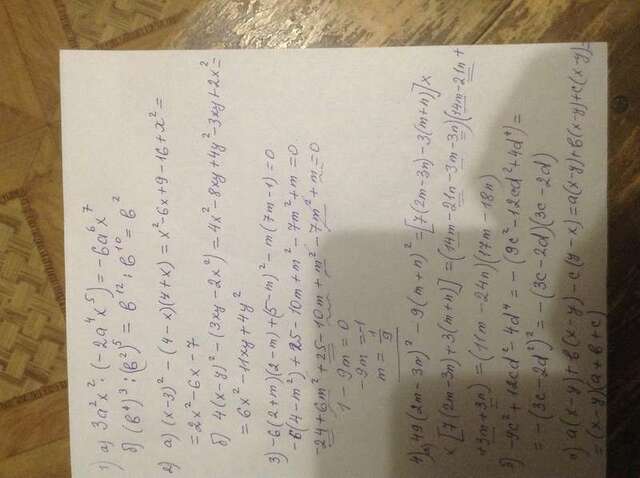 1) а) 3a²x² · (-2a⁴x⁵) = -6a⁶x⁷
б) (b⁴)³ : (b²)⁵ = b¹² : b¹⁰ = b²
2) а) (x-3)² - (4-x)(4+x) = x²-6x+9-16+x² =
= 2x²-6x-7
б) 4(x-y)² - (3xy-2x²) = 4x²-8xy+4y²-3xy+2x² =
= 6x²-11xy+4y²
3) -6(2+m)(2-m)+(5-m)²-m(7m-1)=0
-6(4-m²)+25-10m+m²-7m²+m=0
-24+6m²+25-10m+m²-7m²+m=0
1-9m=0
-9m=-1
m=1/9
4) а) 49(2m-3n)²-9(m+n)²=[7(2m-3n)-3(m+n)]×
×[7(2m-3n)+3(m+n)]=(14m-21n-3m-3n)(14m-21n+
+3m+3n)=(11m-24n)(17m-18n)
б) -9c²+12cd²-4d⁴=-(9c²-12cd²+4d⁴)=
=-(3c-2d²)²=-(3c-2d)(3c-2d)
в) a(x-y)+b(x-y)-c(y-x)=a(x-y)+b(x-y)+c(x-y)=
=(x-y)(a+b+c)